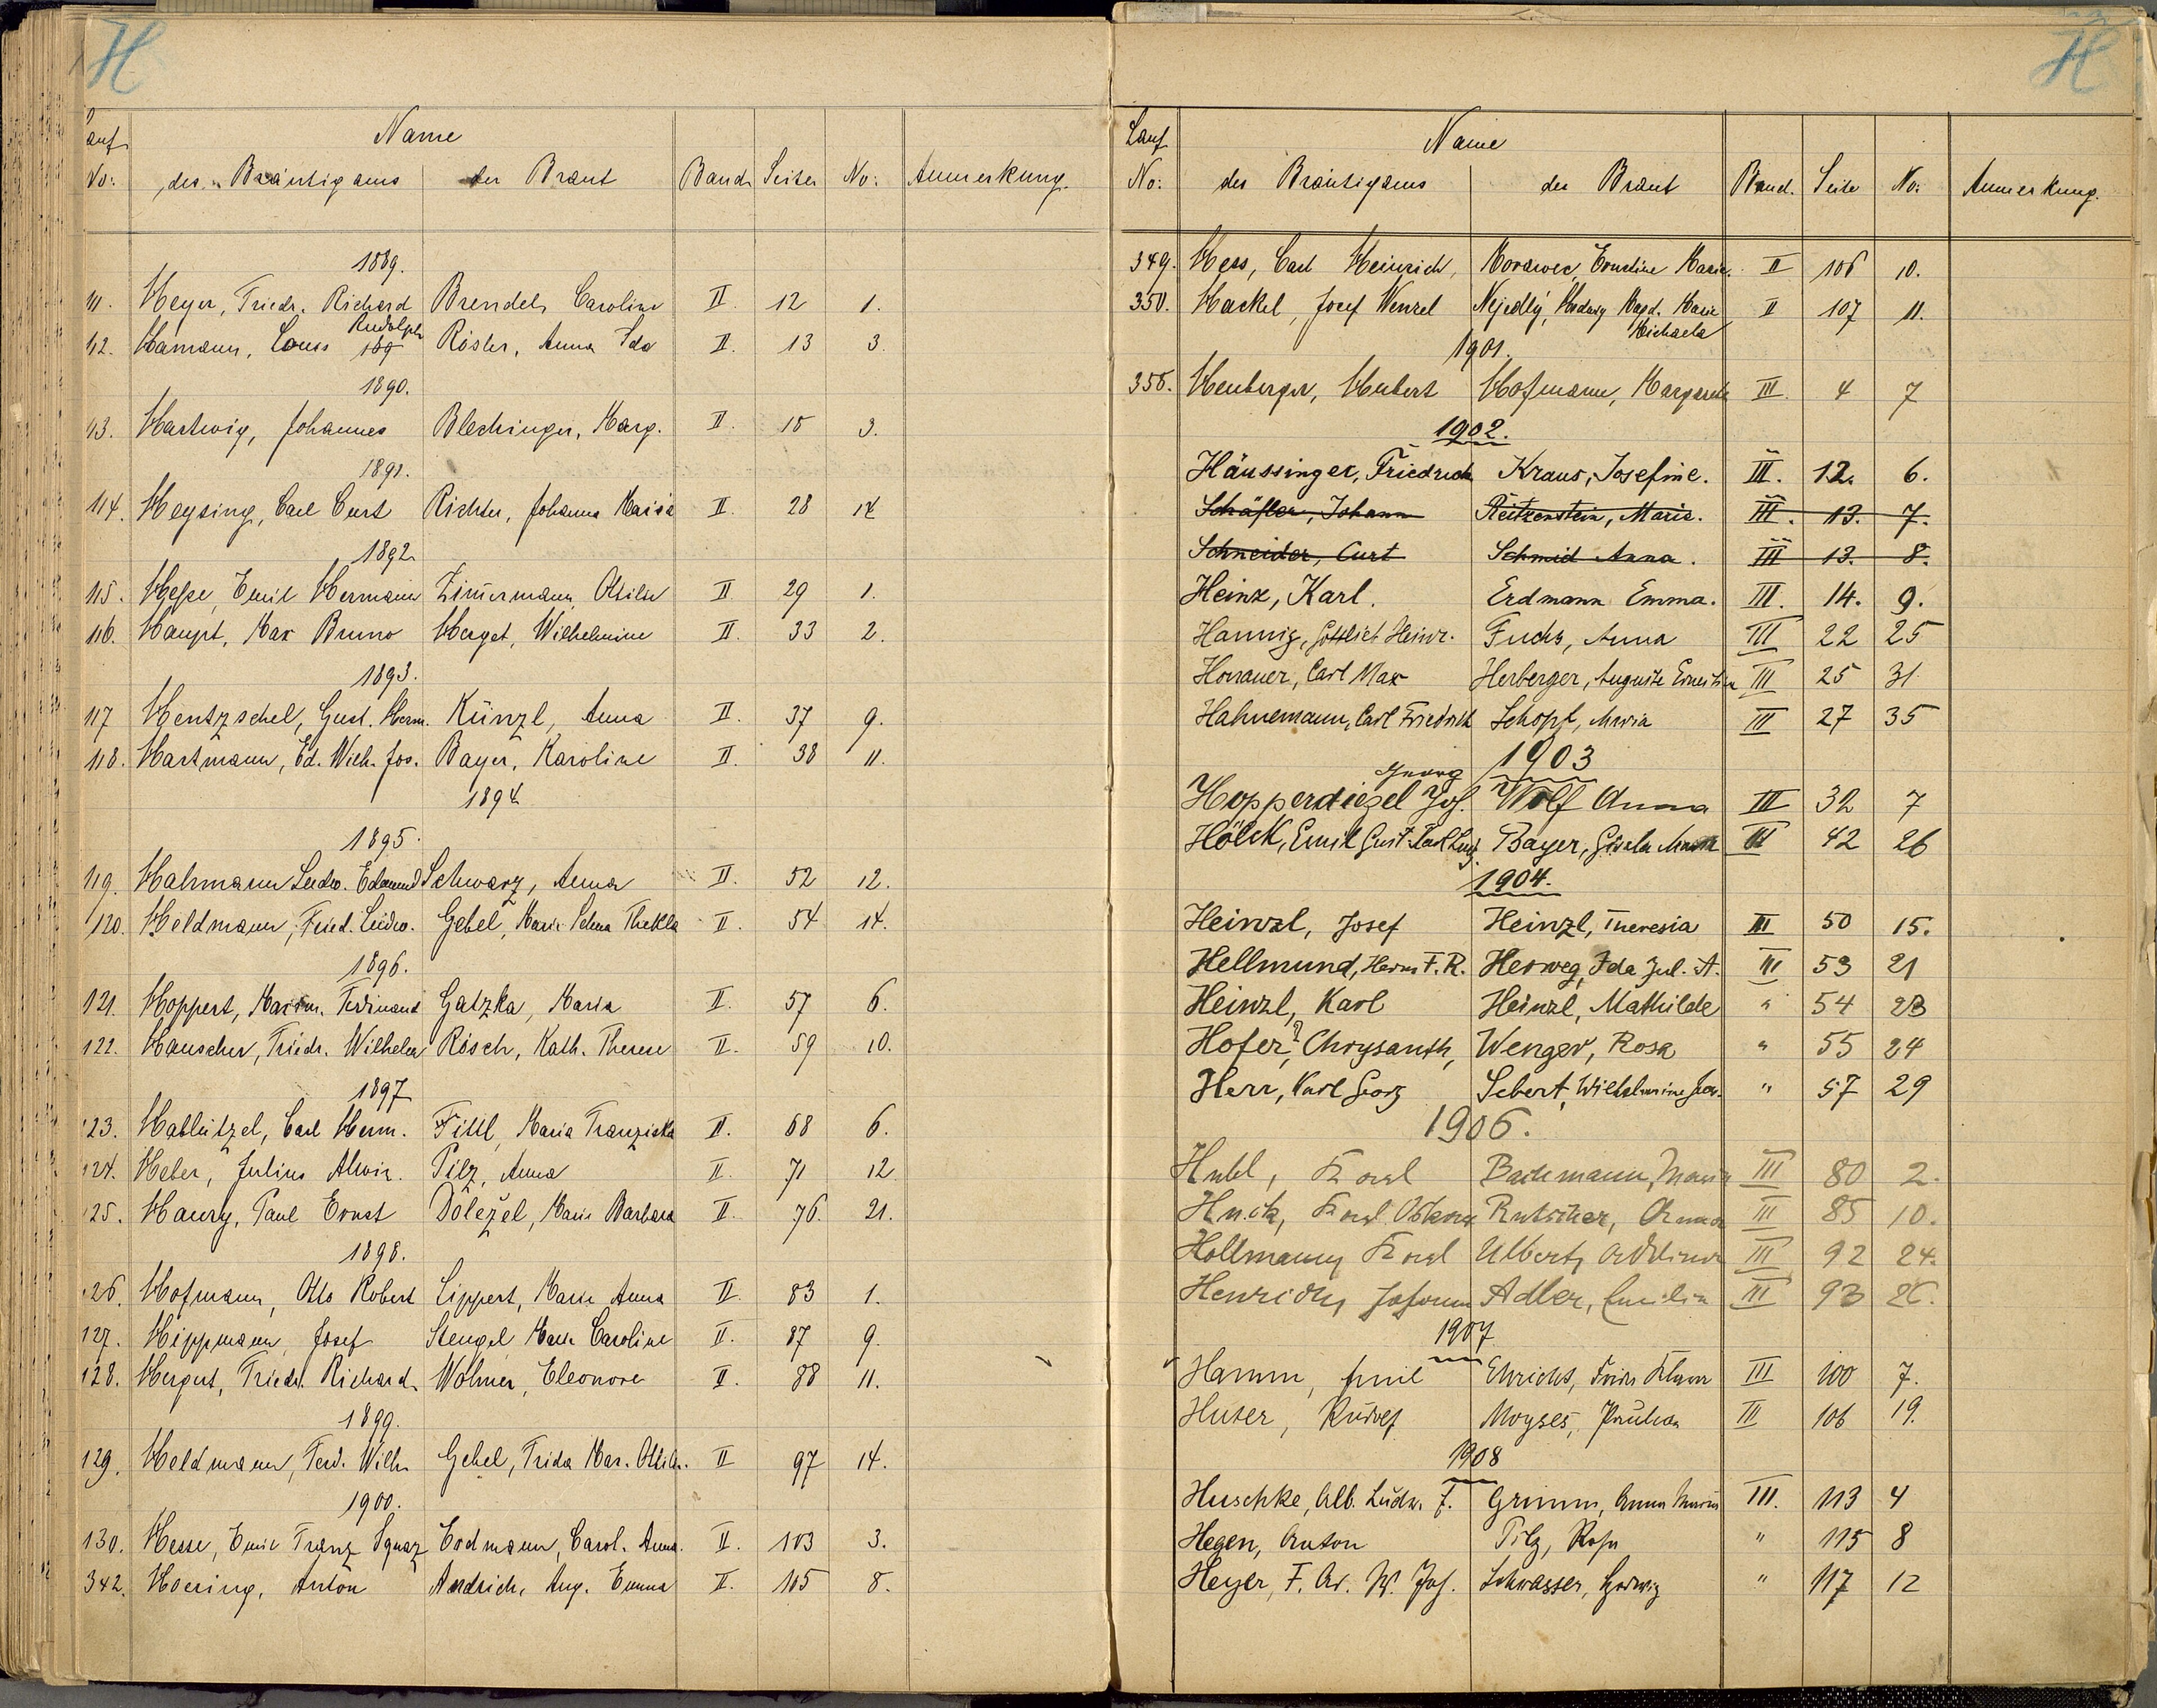 H
Lauf No: Name des Bräutigams der Braut Band Seite No: Anmerkung.
1889.
111. Heyer, Friedr. Richard Brendel, Caroline II. 12 1.
Rudolph
112. Hamann, Louis 189 Rösler, Anna Ida II. 13 3.
1890.
113. Hartwig, Johannes Blechinger, Marg. II. 15 3.
1891.
114. Heysing, Carl Curt Richter, Johanna Maria II. 28 14
1892
115. Hesse, Emil Hermann Zimermann, Ottilie II 29 1.
116. Haupt, Max Bruno Herget, Wilhelmine II. 33 2.
1893.
117 Hentzschel, Gust. Herm. Künzl, Anna II. 37 9.
118. Hartmann, Ed. Wilh. Jos. Bayer, Karoline II. 38 11.
1894
1895.
119. Hahmann Ludw. Edmund Schwarz, Anna II. 52 12.
120. Heldmann, Fried. Ludw. Gebel, Marie Selma Thekla II. 54 14.
1896.
121. Hoppert, Maxim. Ferdinand Gatzka, Maria II. 57 6.
122. Hauscher, Friedr. Wilhelm Rösch, Kath. Therese II. 59 10.
1897
123. Hableitzel, Carl Herm. Fittl, Maria Franziska II. 68 6.
124. Heber, Julius Alwin. Pilz, Anna II. 71 12
125. Haury, Paul Ernst Doležel, Marie Barbara II. 76. 21.
1898.
126. Hofmann, Otto Robert Lippert, Marie Anna II. 83 1.
127. Hippmann, Josef Stengel, Marie Caroline II. 87 9.
128. Hergert, Friedr. Richard. Wohner, Eleonore II. 88 11.
1899.
129. Heldmann, Ferd. Wilh. Gebel, Frida Mar. Ottilie. II 97 14.
1900.
130. Hesse, Emil Franz Ignaz Erdmann, Carol. Anna. II. 103 3.
342. Hoering, Anton Andrich, Aug. Emma II. 105 8.
H
Lauf No: Name des Bräutigams der Braut Band. Seite No: Anmerkung.
349. Hess, Carl Heinrich, Morawec, Ernestine Marie. II 106 10.
350. Hackel, Josef Wenzel Nejedlý, Hedwig Magd. Marie II 107 11.
Michaela
1901.
358. Heuberger, Hubert Hofmann, Margarete III. 4 7
1902.
Häussinger, Friedrich Kraus, Josefine. III. 12. 6.
Schäfler, Johann Reitzenstein, Maria. III. 13. 7.
Schneider, Curt Schmid Anna. III 13. 8.
Heinz, Karl. Erdmann Emma. III. 14. 9.
Hannig, Gottlieb Heinr. Fuchs, Anna III 22 25
Honauer, Carl Max Herberger, Auguste Ernestine III 25 31
Hahnemann, Carl Friedrich Schopf, Maria III 27 35
1903
Georg
Hopperdiezel Joh. Wolf Anna III 32 7
Hölck, Emil Gust. Karl Ludg. Bayer, Gisela Maria III 42 26
1904.
Heinzl, Josef Heinzl, Theresia III 50 15.
Hellmund, Herm F. R. Herweg, Ida Jul. A. III 53 21
Heinzl, Karl Heinzl, Mathilde " 54 23
Hofer, ? Chrysanth, Wenger, Rosa " 55 24
Herr, Karl Georg Sebert, Wilhelmine " 57 29
1906.
Karl Bachmann, Maria III 80 2.
Karl Anna III 85 10.
Hollmann, Karl Albert, III 92 24.
Henrichs, Johann Adler, Emilie III 93 26.
1907
Hamm, Emil Ehrichs, III 100 7.
Huter, Rudolf Moyses, Paulina III 106 19.
1908
Huschke, Alb. Ludw. F. Grimm, Anna Maria III. 113 4
Hegen, Anton Pilz, Rosa " 115 8
Heyer, F. Ar. W. Joh. Schwasser, Hedwig " 117 12